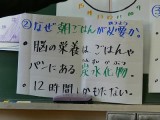 ②なぜ朝ごはんが必要か。
脳の栄養はごはんや
パンにある炭水化物。
12時間しかもたない。